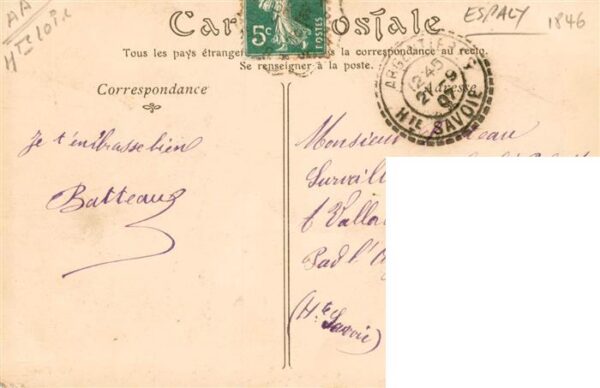 AA
Hte Loire
ESPALY 1846
Car Postale
5c POSTES
Tous les pays étranger la correspondance au recto.
Se renseigner à la poste.
Correspondance
Adresse
12 45
2 -9
07
Hte SAVOIE
Je t'embrasse bien
Batteaux
Monsieur eau
Surveill
à Vallor
Pad l'
(Hte Savoie)